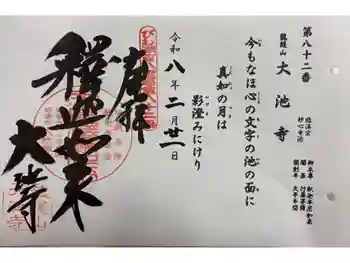 第八十二番
龍護山 大池寺
臨済宗
妙心寺派
御本尊 釈迦牟尼如来
開基 行基菩薩
開創年 天平年間
今もなほ心の文字の池の面に
真如の月は
影澄みにけり
令和八年二月廿一日
奉拝
釋迦如来
大池寺